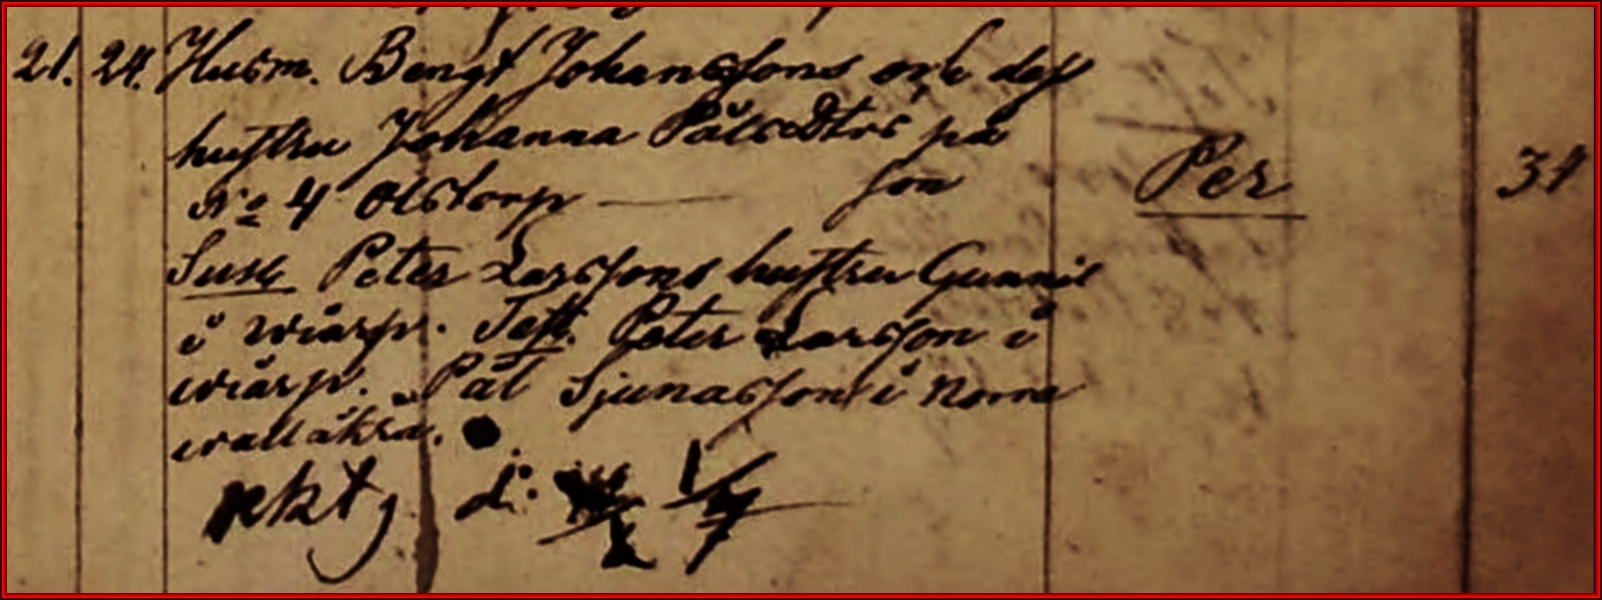 21. 24. Husm. Bengt Johanssons och dess
hustru Johanna Pålsdtrs på
No 4 Olstorp — son Per 31
Susc Peter Larssons hustru Gunnil
i wiarp. Test. Peter Larsson i
wiarp. Pål Sjunasson i Norra
wallåkra.
d. 1/7